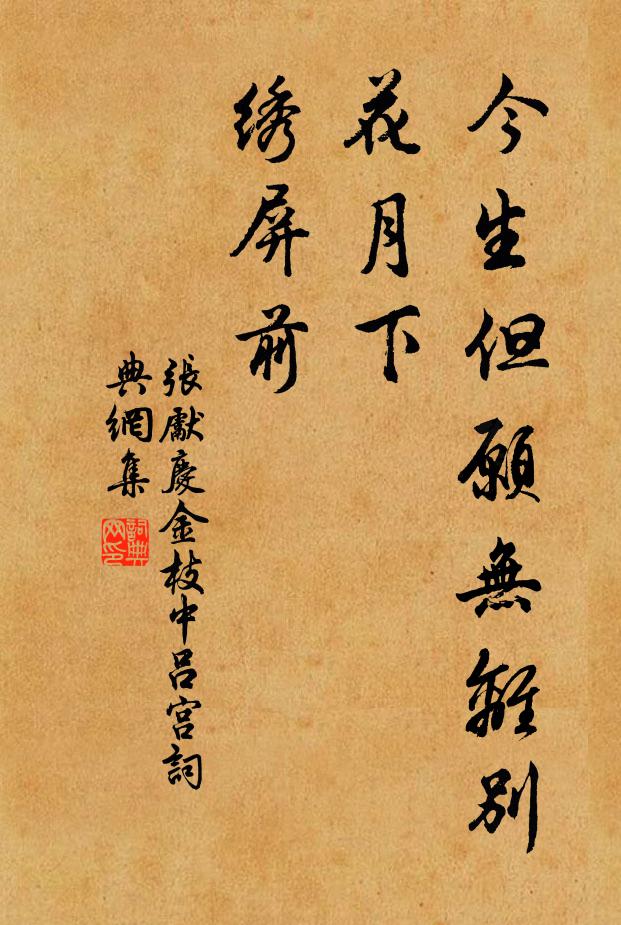 今生但願無離別
花月下
绣屏前
張獻慶金枝中呂宮詞
典網集
詞典网印